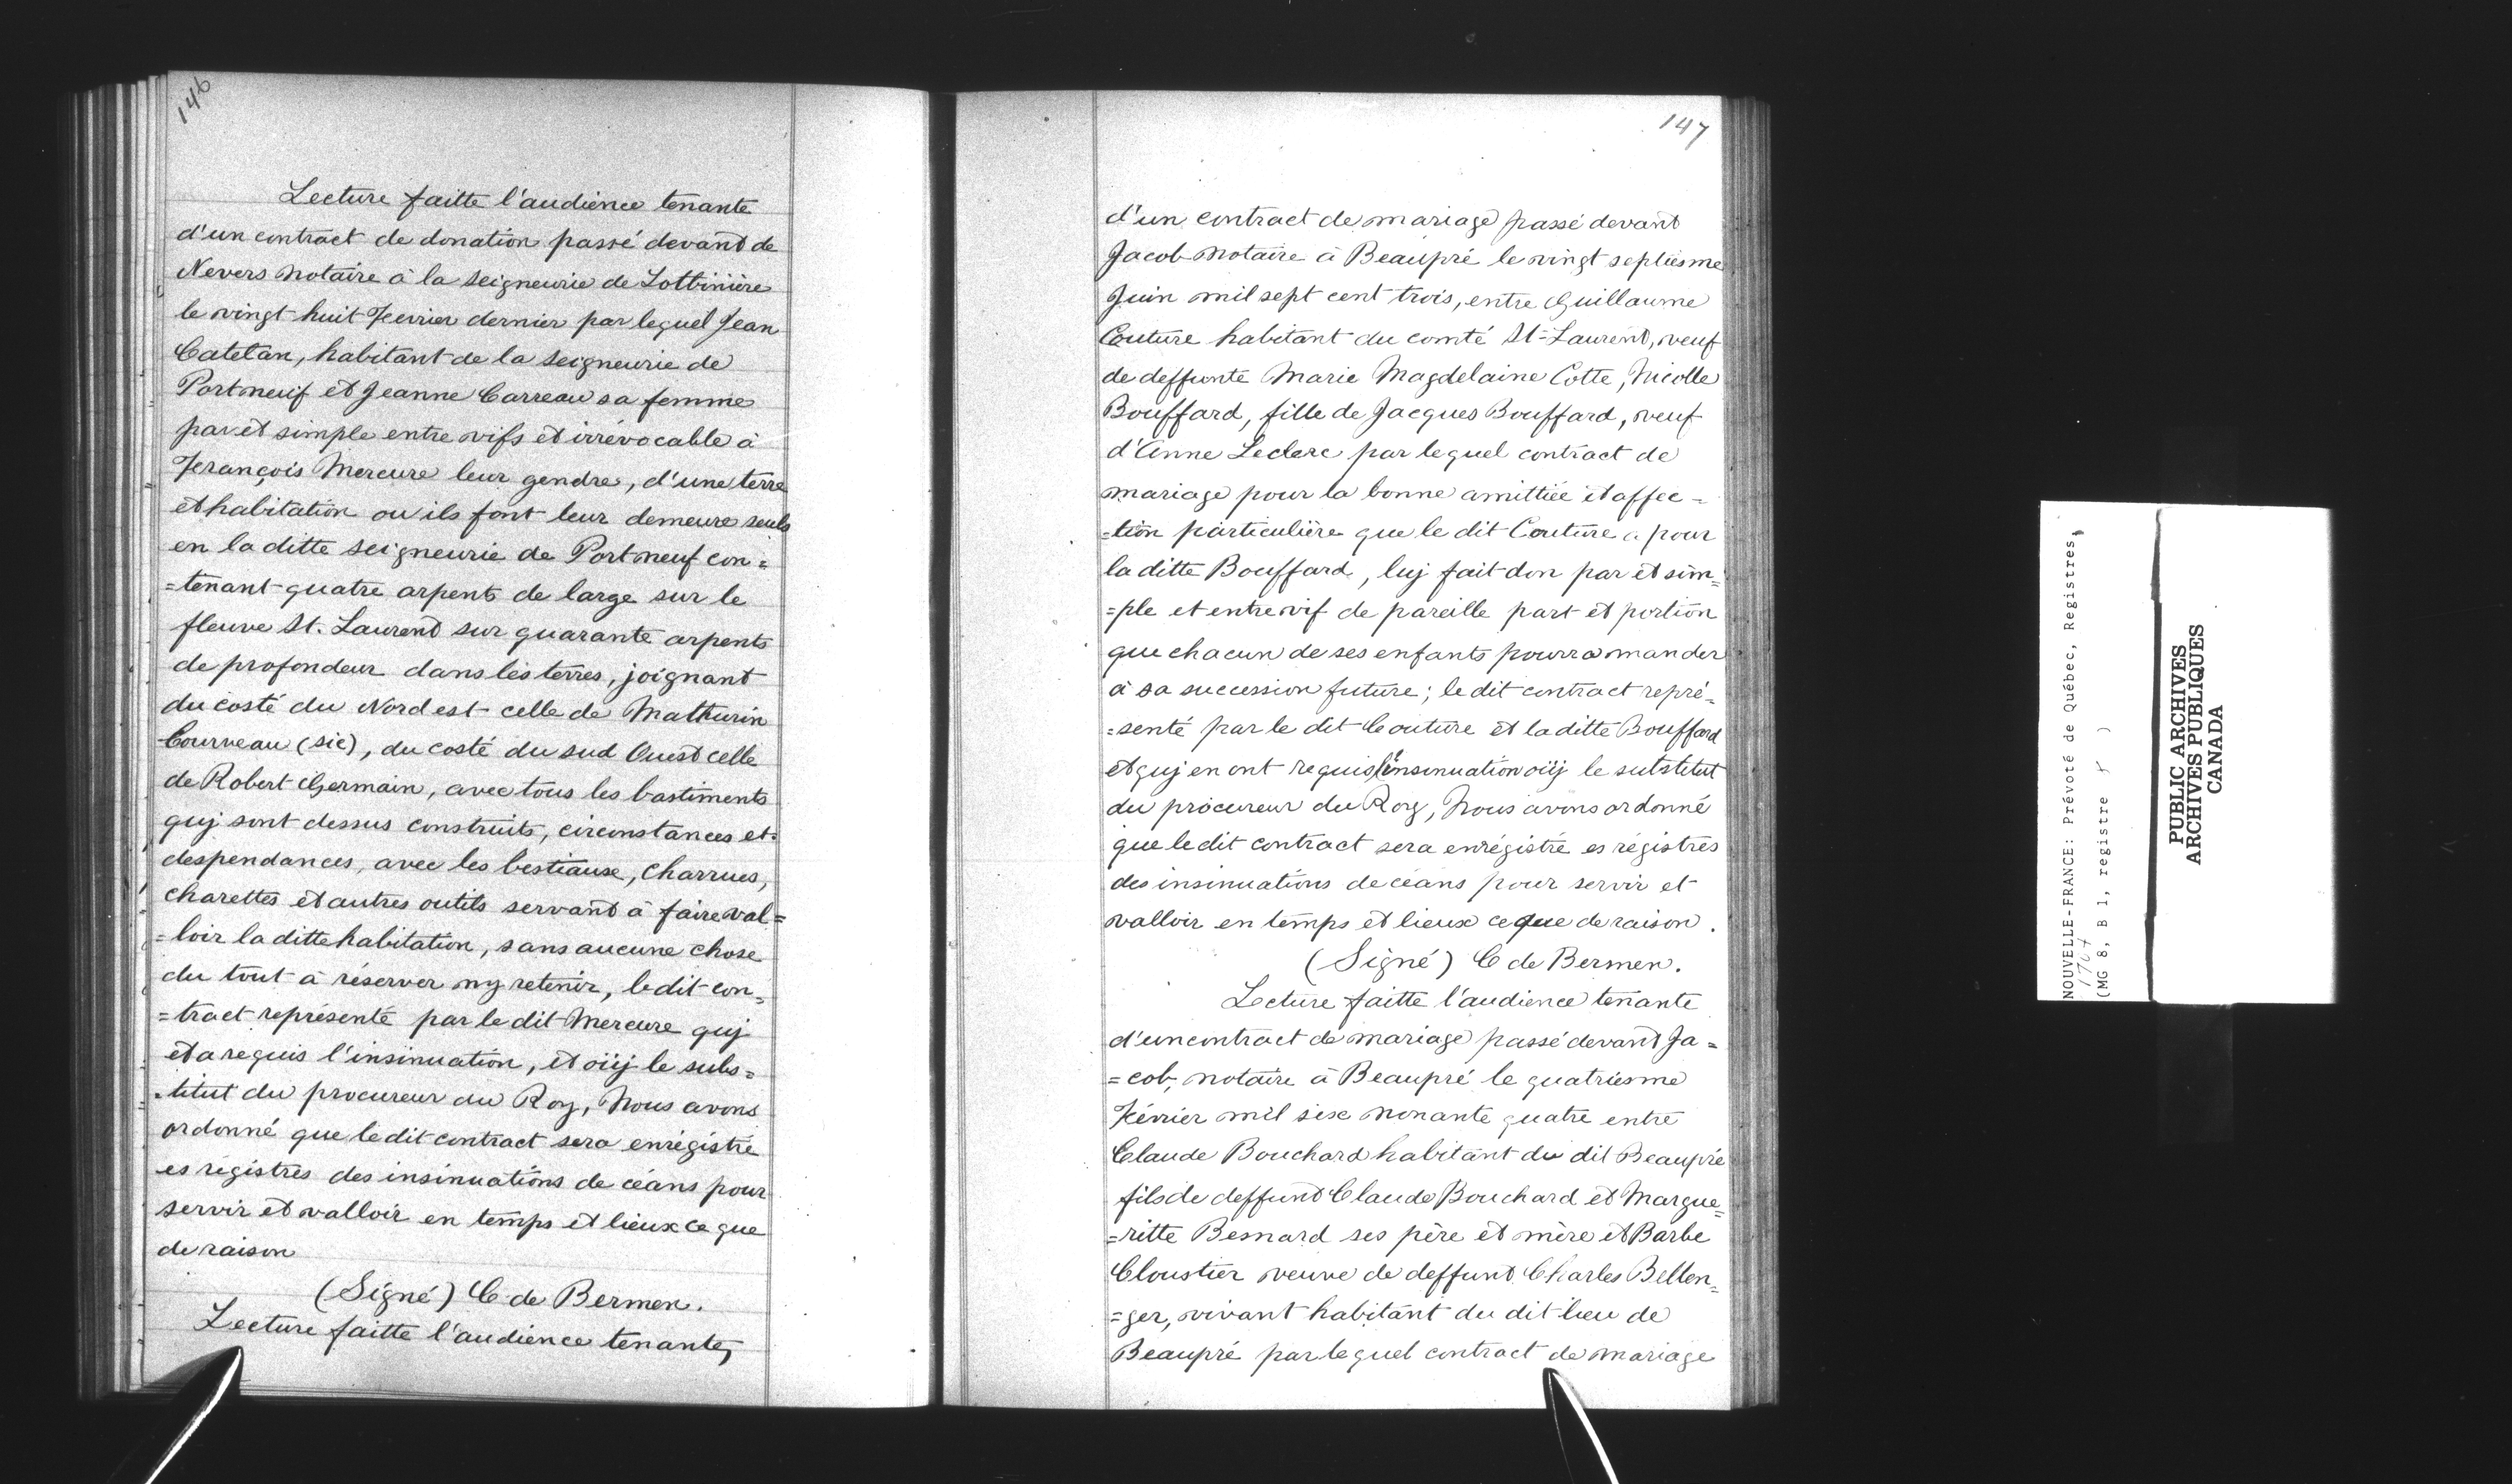 146
Lecture faitte l'audience tenante
d'un contract de donation passé devant de
Nevers notaire à la seigneurie de Lotbinière
le vingt huit Fevrier dernier par lequel Jean
Catelan, habitant de la seigneurie de
Portneuf et Jeanne Carreau sa femme
par et simple entre vifs et irrévocable à
François Mercure leur gendre, d'une terre
et habitation ou ils font leur demeure seuls
en la ditte seigneurie de Portneuf con=
=tenant quatre arpents de large sur le
fleuve St. Laurent sur quarante arpents
de profondeur dans les terres, joignant
du costé du Nord est celle de Mathurin
Courveau (sic), du costé du sud Ouest celle
de Robert Germain, avec tous les bastiments
quj sont dessus construits, circonstances et
despendances, avec les bestiaux, charrues,
charettes et autres outils servant à faire val=
=loir la ditte habitation, sans aucune chose
du tout à réserver ny retenir, le dit con=
=tract représenté par le dit Mercure quj
et a requis l'insinuation, et oüij le subs=
=titut du procureur du Roy, Nous avons
ordonné que le dit contract sera enrégistré
es régistres des insinuations de céans pour
servir et valloir en temps et lieux ce que
de raison
(Signé) C de Bermen.
Lecture faitte l'audience tenante,
147
d'un contract de mariage passé devant
Jacob notaire à Beaupré le vingt septiesme
Juin mil sept cent trois, entre Guillaume
Couture habitant du comté St-Laurent, veuf
de deffunte Marie Magdelaine Cotte, Nicolle
Bouffard, fille de Jacques Bouffard, veuf
d'Anne Leclerc par lequel contract de
mariage pour la bonne amittiée et affec=
=tion particulière que le dit Couture a pour
la ditte Bouffard, luj fait don par et sim=
=ple et entre vif de pareille part et portion
que chacun de ses enfants pourra mander
à sa succession future; le dit contract repré=
=senté par le dit Couture et la ditte Bouffard
et quj en ont requis l'insinuation oüij le substitut
du procureur du Roy, Nous avons ordonné
que le dit contract sera enrégistré es régistres
des insinuations de céans pour servir et
valloir en temps et lieux ce que de raison.
(Signé) C de Bermen.
Lecture faitte l'audience tenante
d'un contract de mariage passé devant Ja=
=cob, notaire à Beaupré le quatriesme
Février mil six nonante quatre entre
Claude Bouchard habitant du dit Beaupré
fils de deffunt Claude Bouchard et Margue=
=ritte Besnard ses père et mère et Barbe
Cloustier veuve de deffunt Charles Bellen=
=ger, vivant habitant du dit lieu de
Beaupré par lequel contract de mariage
NOUVELLE-FRANCE: Prévoté de Québec, Registres,
1707
(MG 8, B 1, registre )
PUBLIC ARCHIVES
ARCHIVES PUBLIQUES
CANADA